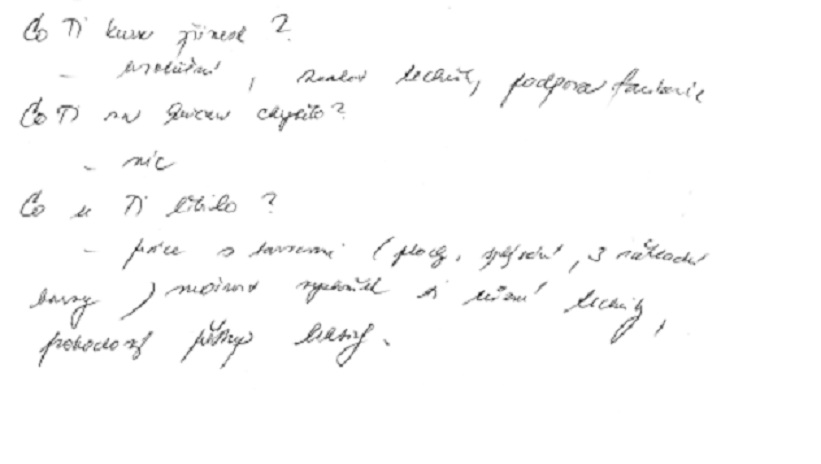 Co Ti kurz přinesl ?
- uvolnění, techniky, podpora fantazie
Co Ti na kurzu chybělo ?
- nic
Co se Ti líbilo ?
- práce s barvami (plochy, , 3 náhodné
barvy ) možnost vyzkoušet si různé techniky,
pohodový přístup lektorky.